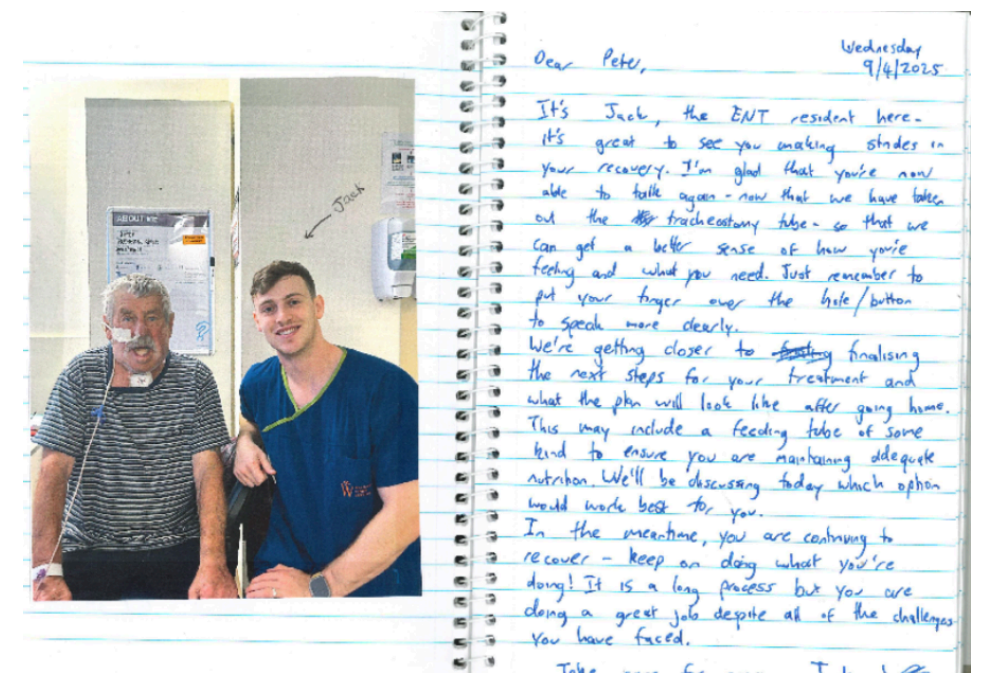 Jack
Wednesday
9/4/2025
Dear Peter,
It's Jack, the ENT resident here -
it's great to see you making strides in
your recovery. I'm glad that you're now
able to talk again - now that we have taken
out the tracheostomy tube - so that we
can get a better sense of how you're
feeling and what you need. Just remember to
put your finger over the hole/button
to speak more clearly.
We're getting closer to finalising
the next steps for your treatment and
what the plan will look like after going home.
This may include a feeding tube of some
kind to ensure you are maintaining adequate
nutrition. We'll be discussing today which option
would work best for you.
In the meantime, you are continuing to
recover - keep on doing what you're
doing! It is a long process but you are
doing a great job despite all of the challenges
you have faced.
Take care